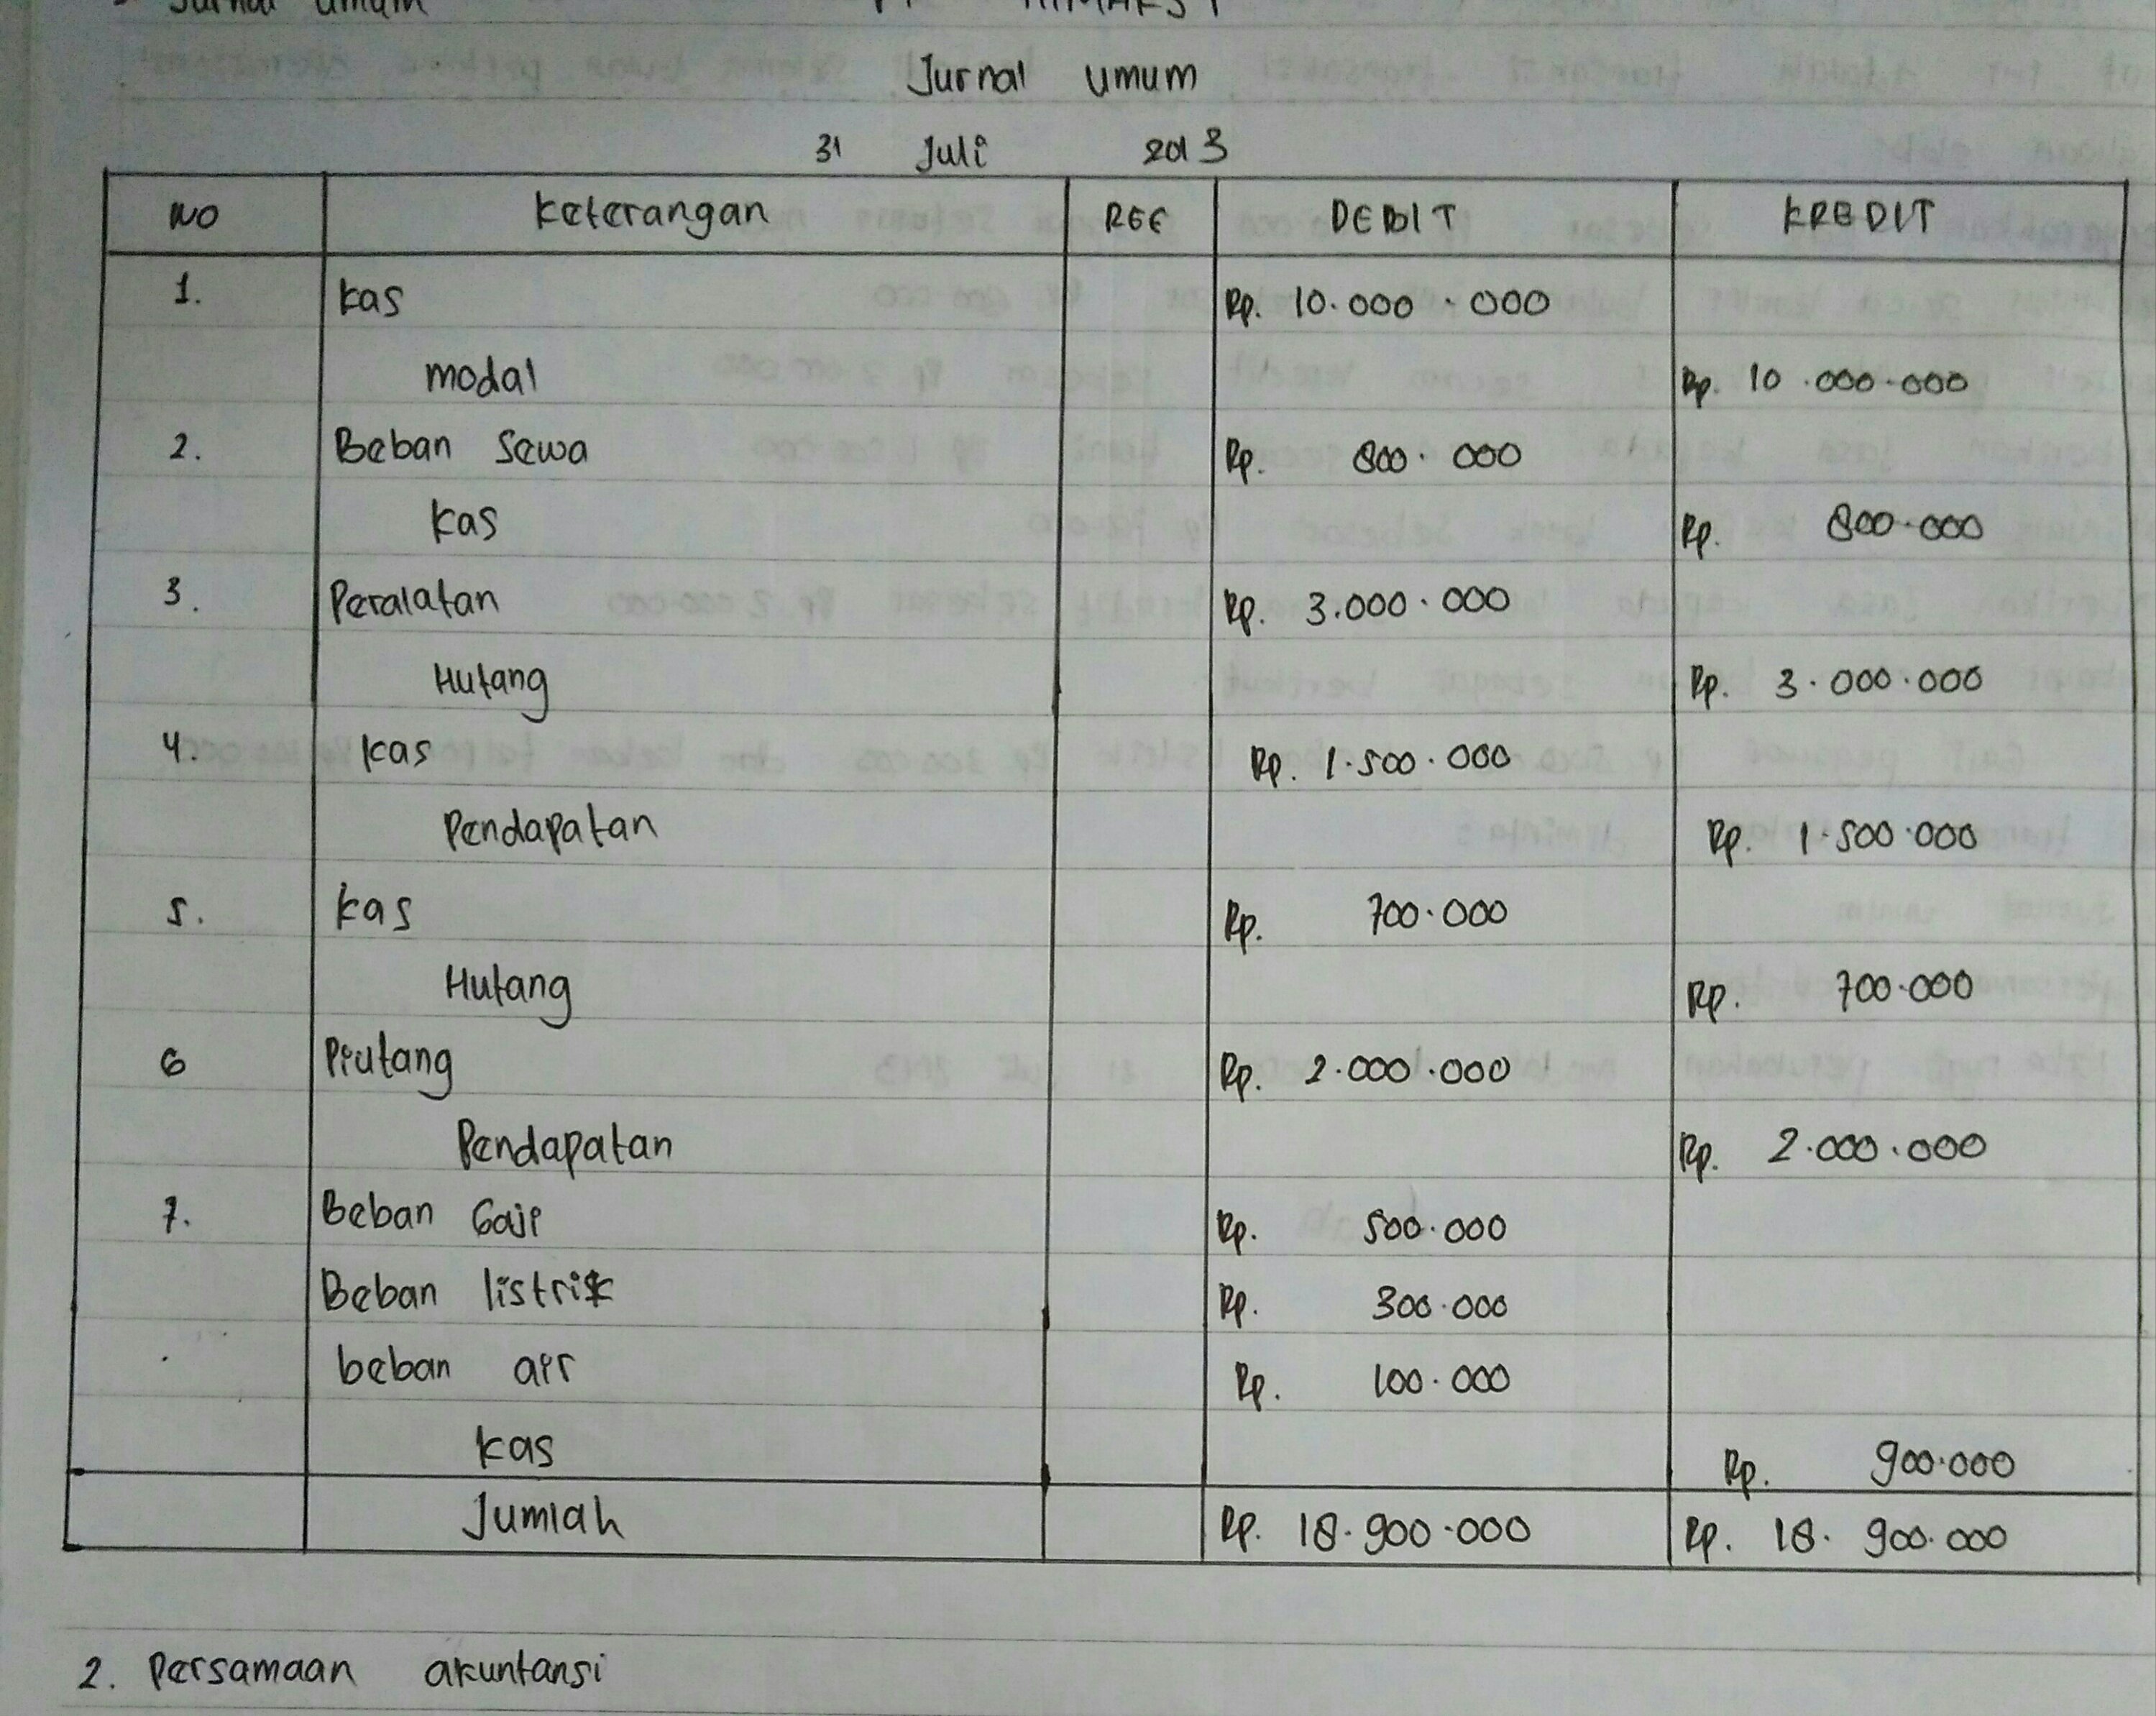 Jurnal umum
Jurnal umum
31 Juli 2013
NO Keterangan REF DEBIT KREDIT
1. kas Rp. 10.000.000
modal Rp. 10.000.000
2. Beban Sewa Rp. 800.000
kas Rp. 800.000
3. Peralatan Rp. 3.000.000
Hutang Rp. 3.000.000
4. kas Rp. 1.500.000
Pendapatan Rp. 1.500.000
5. kas Rp. 700.000
Hutang Rp. 700.000
6 Piutang Rp. 2.000.000
Pendapatan Rp. 2.000.000
7. Beban Gaji Rp. 500.000
Beban listrik Rp. 300.000
beban air Rp. 100.000
kas Rp. 900.000
Jumlah Rp. 18.900.000 Rp. 18.900.000
2. Persamaan akuntansi